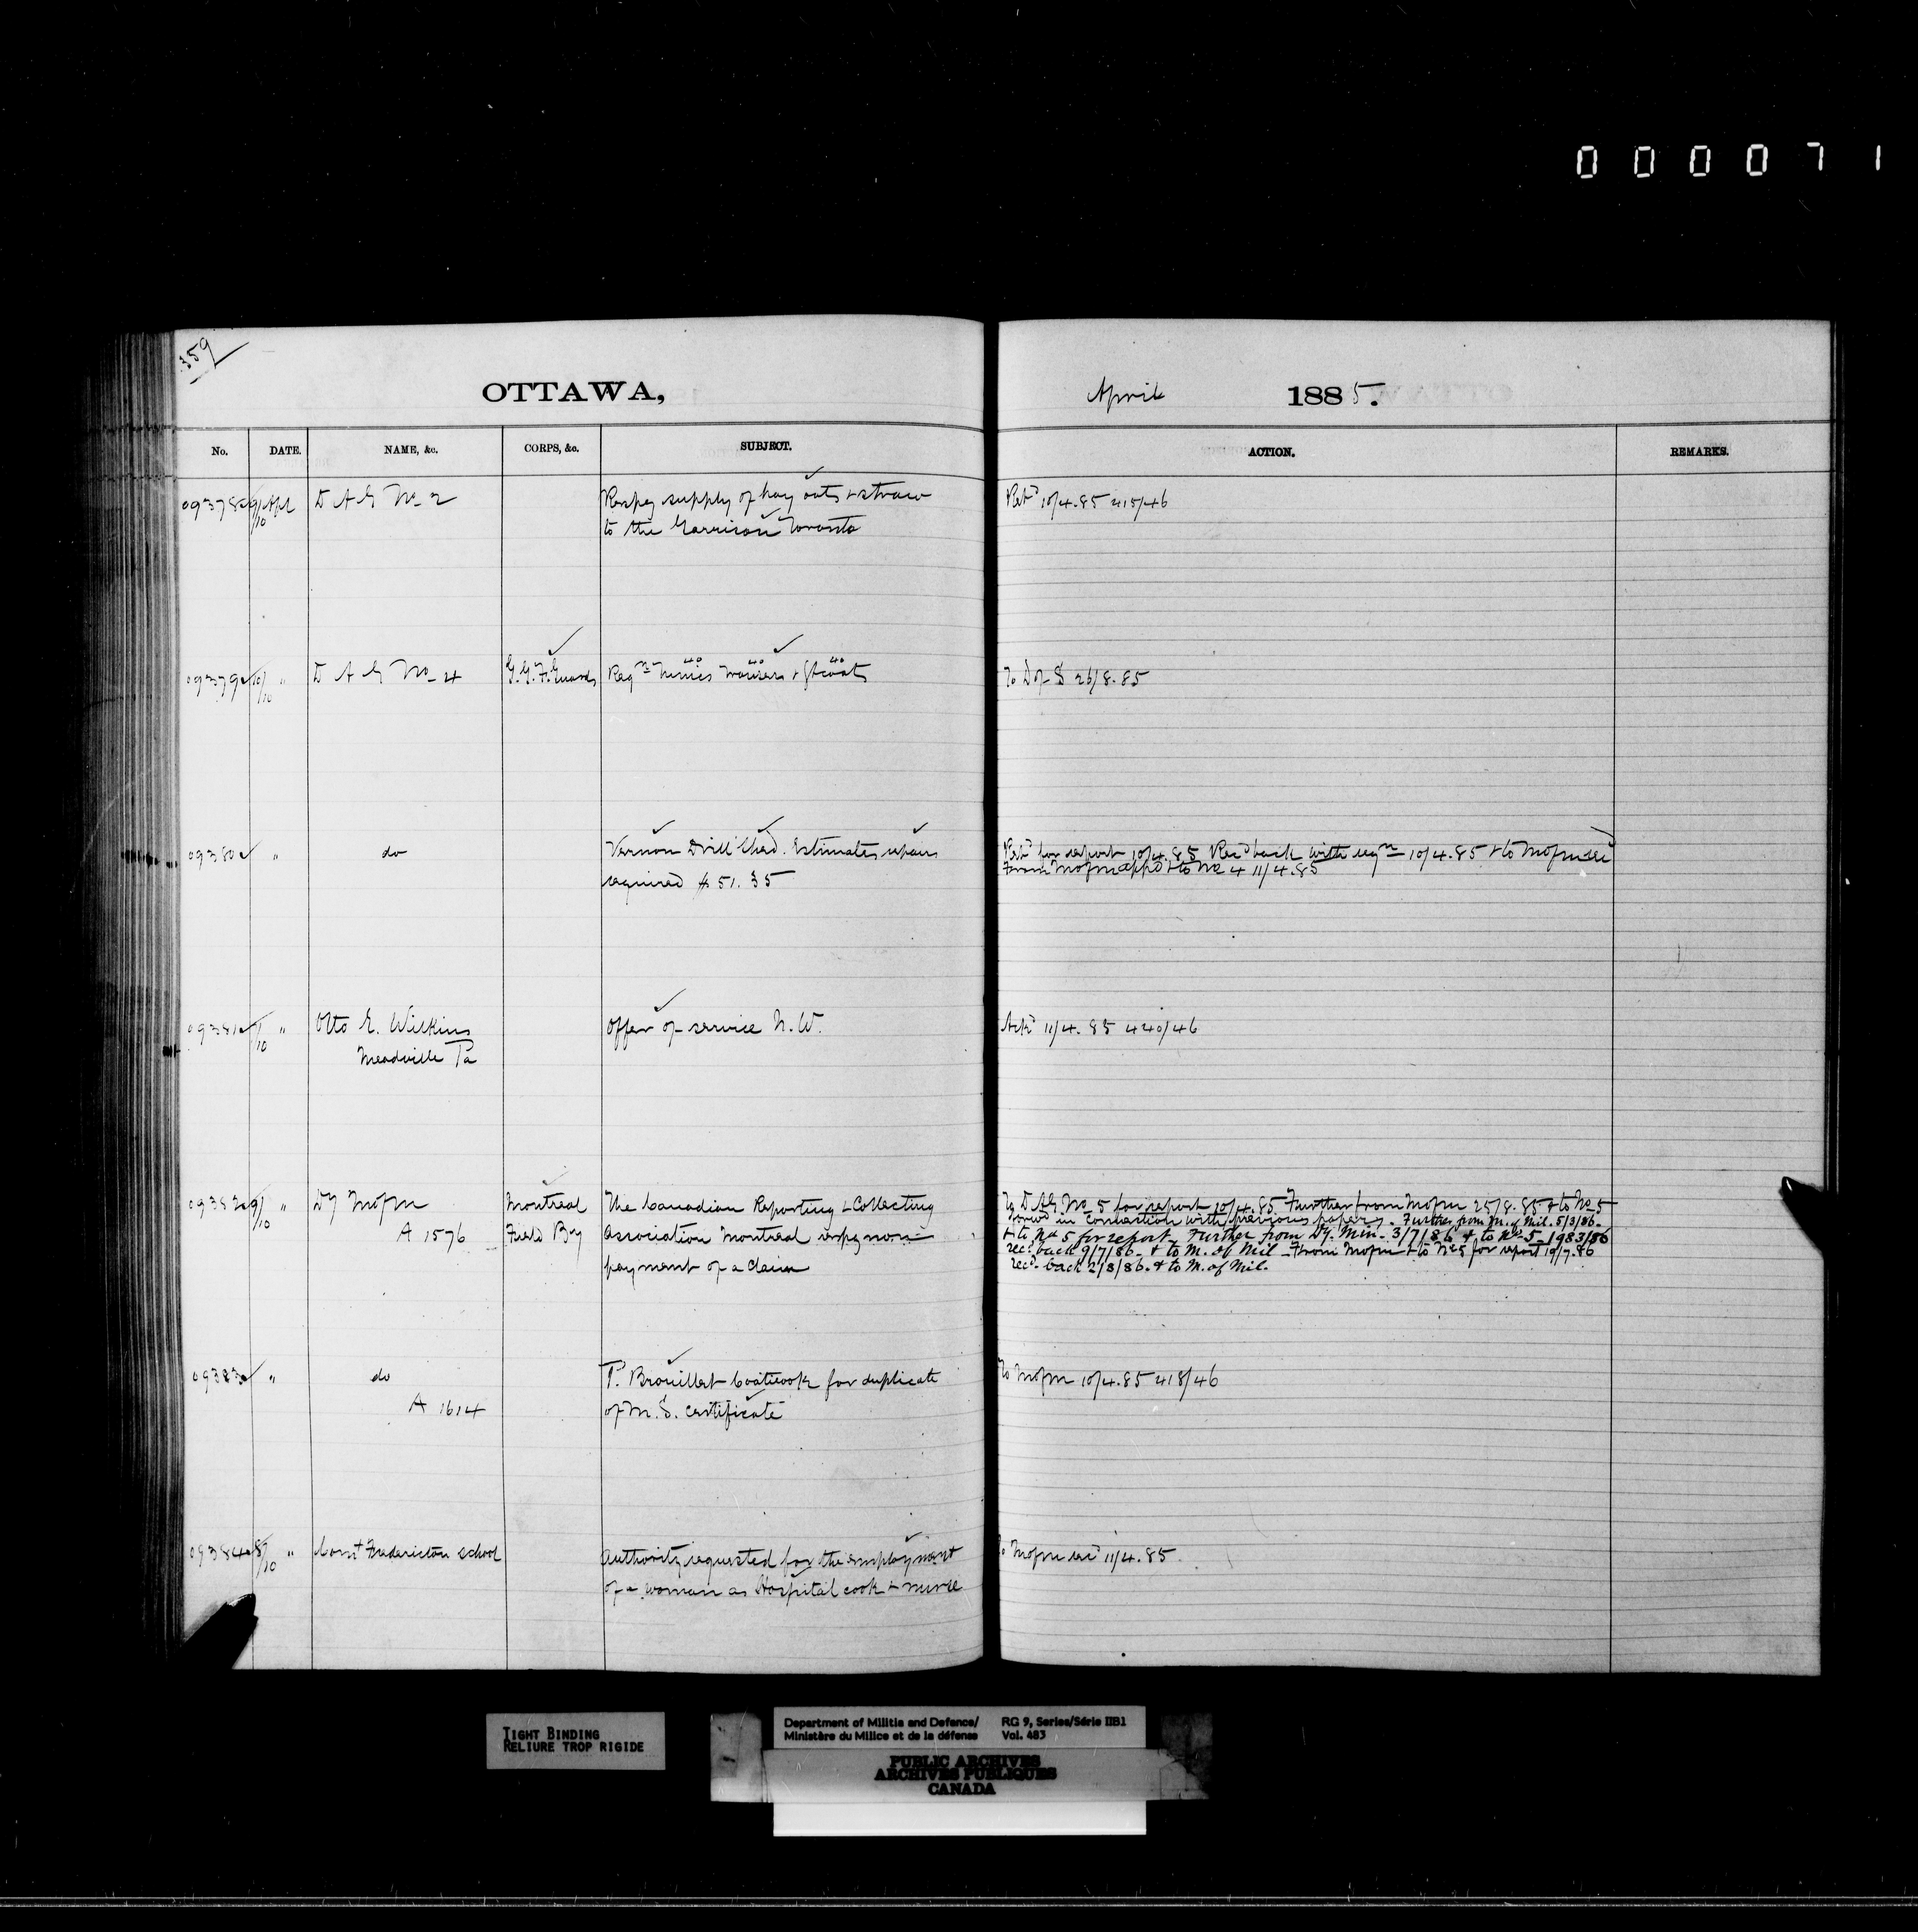 000071
359
OTTAWA,
April 1885.
No. DATE. NAME, &c. CORPS, &c. SUBJECT. ACTION. REMARKS.
09378 9/10 Apl D A G No 2 Respg supply of hay oats + straw Retd 10/4.85 415/46
to the Garrison Toronto
09379 10/10 " D A G No 4 G.G.F.Guards Reqn 40 tunics 40 trousers + 40 gt coats To D of S 26/8.85
09380 " do Vernon Drill Shed. Estimates repairs Retd for report 10/4.85 Recd back with reqn 10/4.85 + to Mofm recd
required $ 51.35 from Mofm appd + to No 4 11/4.85
09381 /10 " Otto E. Wilkins offer of service N.W. Ackd 11/4.85 440/46
Meadville Pa
09382 9/10 " Dy Mofm Montreal The Canadian Reporting + Collecting To D.A.G. No 5 for report 10/4.85 Further from Mofm 25/8.85 + to No 5
A 1576 Field By Association Montreal respg non forwd in connection with previous papers. Further from M. of Mil. 5/3/86.
payment of a claim + to No 5 for report. Further from Dy. Min. 3/7/86 + to No 5 1983/86
recd back 9/7/86. + to M. of Mil From Mofm + to No 5 for report 19/7.86
recd back 2/8/86. + to M. of Mil.
09383 " do P. Brouillet Coaticook for duplicate To Mofm 10/4.85 418/46
A 1614 of M.S. certificate
09384 8/10 " Comt Fredericton School Authority requested for the employment To Mofm recd 11/4.85
of a woman as Hospital cook + nurse
TIGHT BINDING
RELIURE TROP RIGIDE
Department of Militia and Defence/ RG 9, Series/Série IIB1
Ministère du Milice et de la défense Vol. 483
PUBLIC ARCHIVES
ARCHIVES PUBLIQUES
CANADA